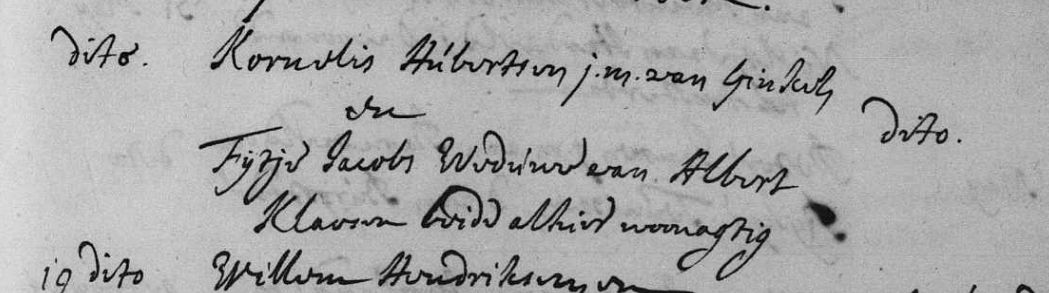 dito. Kornelis Húbertsen j.m. van Ginkel
en dito.
Fijtje Jacobs Wedúwe van Albert
Klaesen beide alhier woonagtig
19 dito Willem Hendriksen en